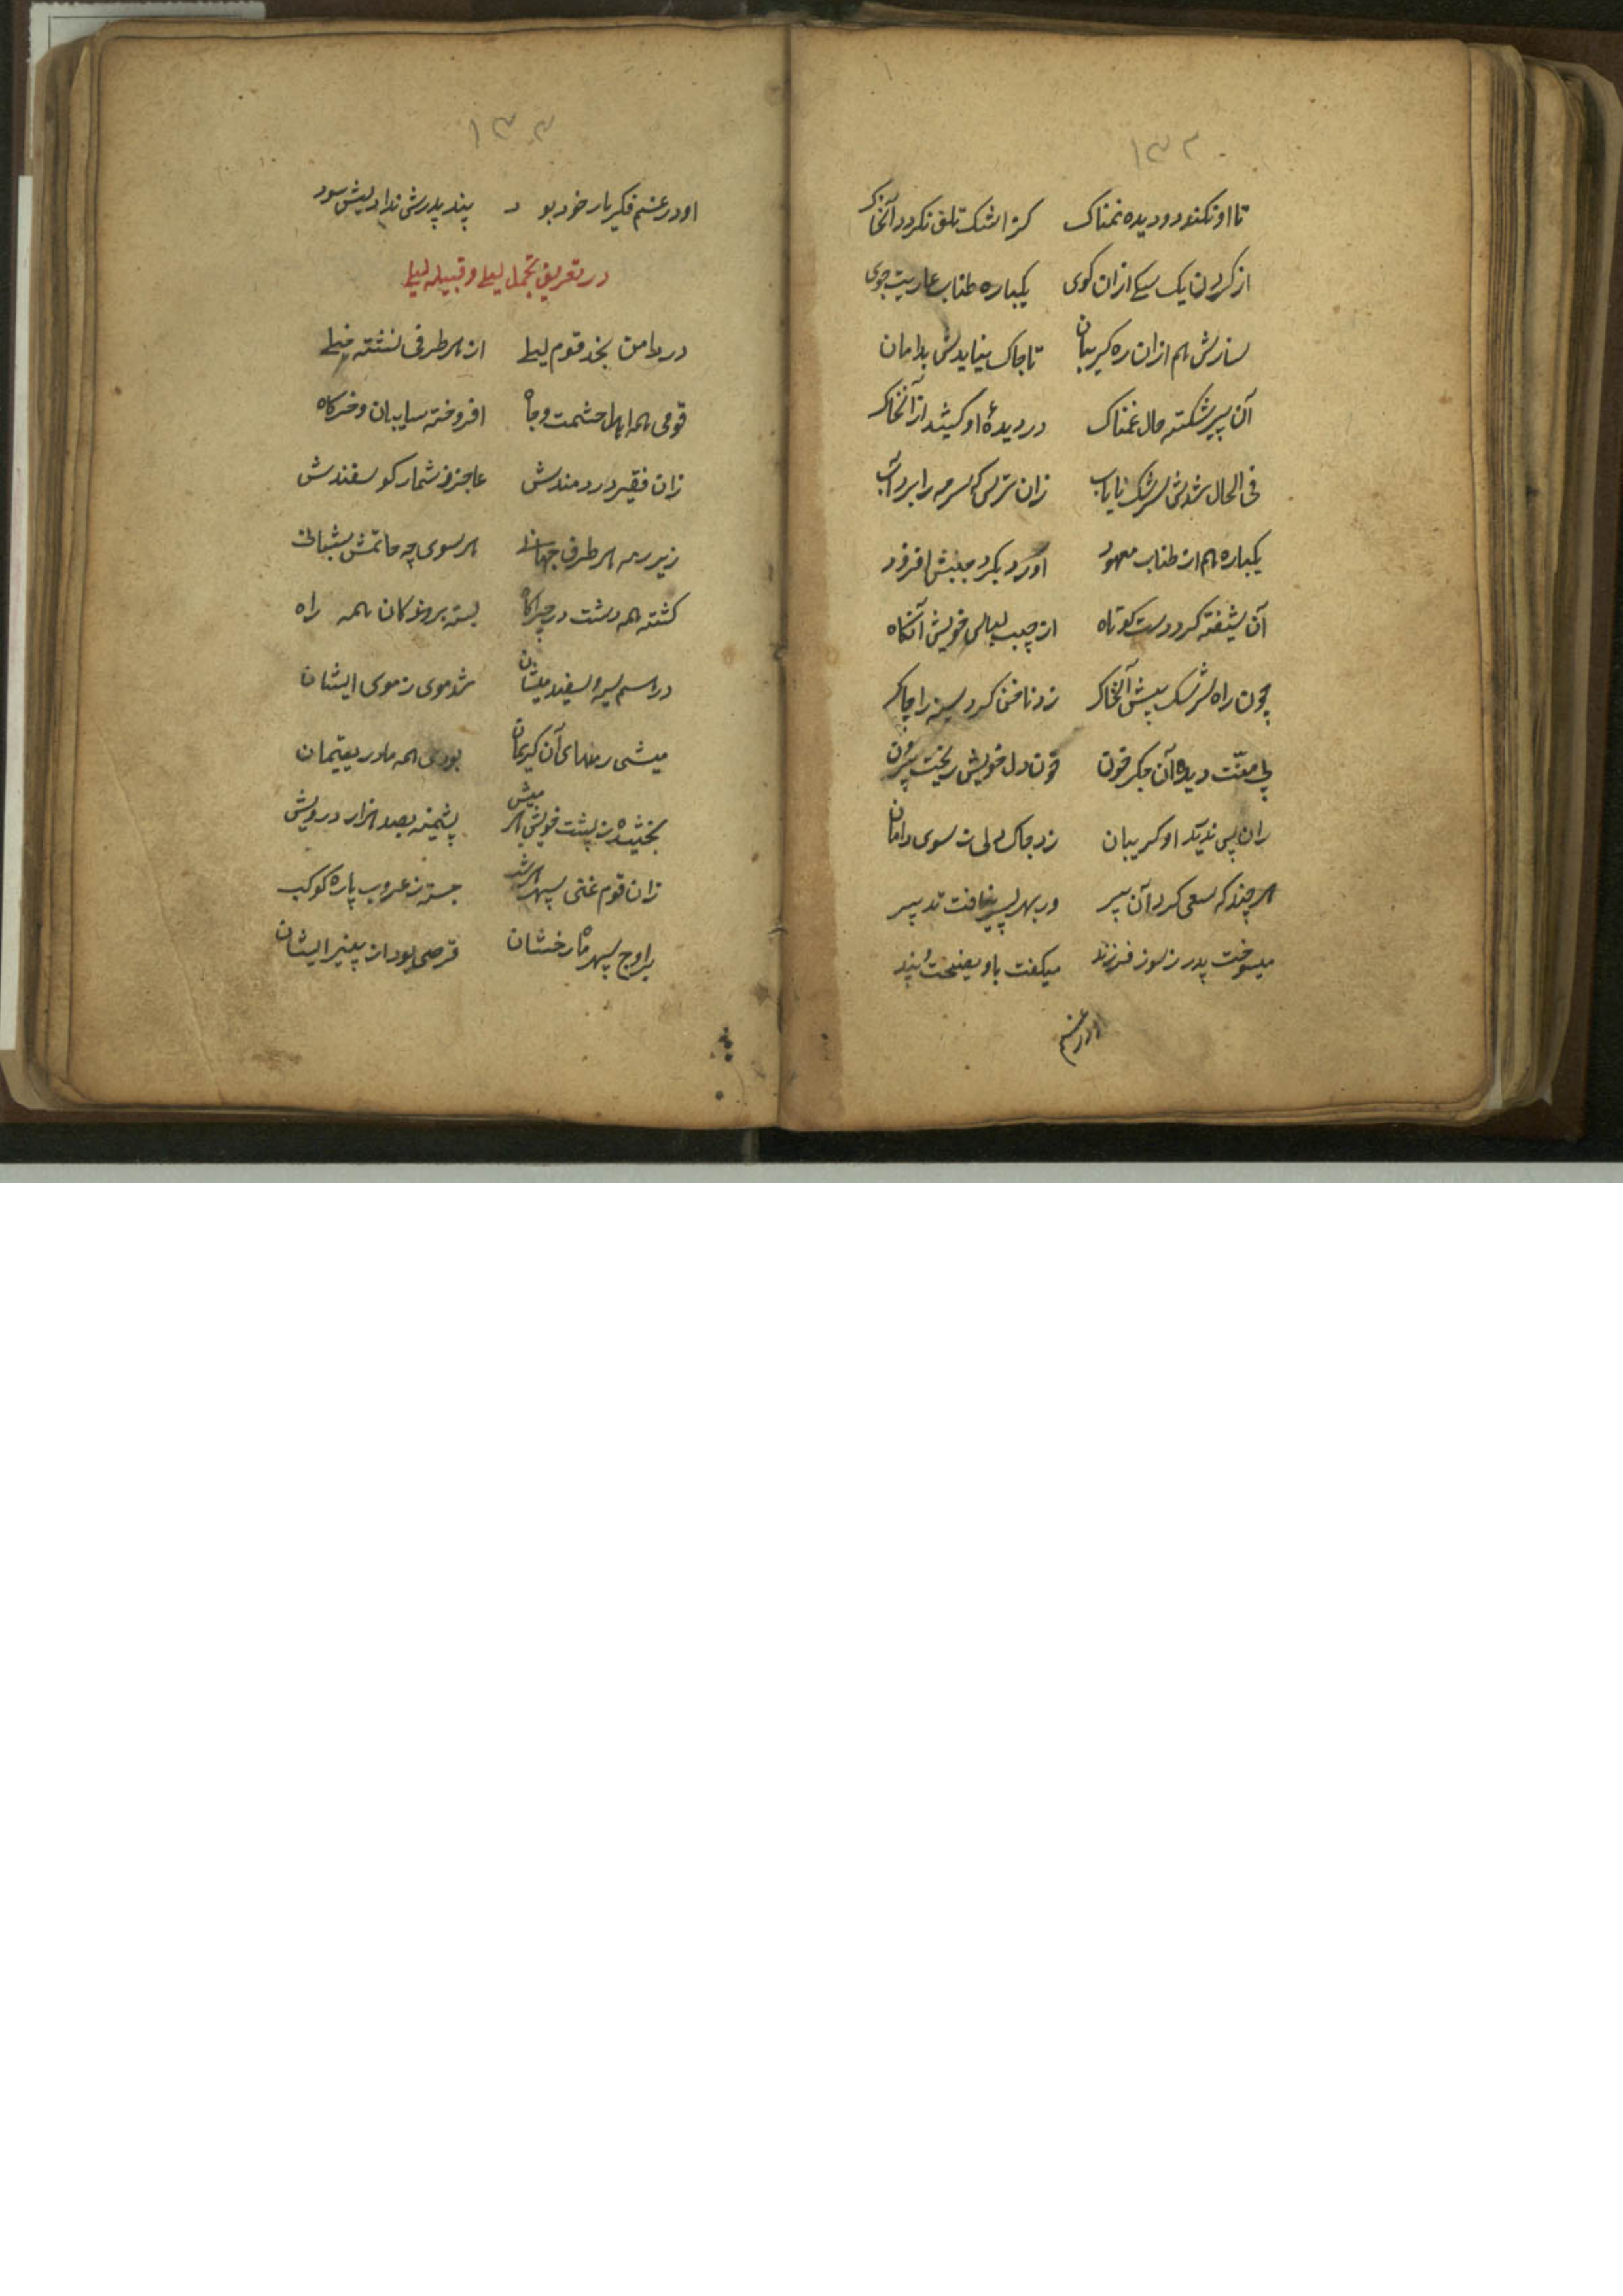 ۱۳۲
تا او نکند دو دیده نمناک کز اشک تلف نکردد آنخاک
از کردن یک سکی ازان کوی یکباره طناب عاریت جوی
سازش هم ازان ره کریبان تا چاک نماید بدامان
آن پیر شکسته حال غمناک در دیدهٔ او کشید ازآنخاک
فی الحال شدش سرشک نایاب زان ترس که سرمه را برد آب
یکباره هم از طناب معهود آورد بکرد جیبش افزود
آن شیفته کرد دست کوتاه از جیب لباس خویش آنکاه
چون راه سرشک بیش آنخاک زد ناخن کرد سینه را چاک
بی منّت دیده آن جکر خون خون دل خویش ریخت بیرون
زان پس ندرید او کریبان زد چاک ولی ز سوی دامان
هر چند که سعی کرد آن پیر در بهر پسر نیافت تدبیر
میسوخت پدر ز سوز فرزند میکفت باو نصیحت و پند
او در غم
۱۳۳
او در غم فکر یار خود بود پند پدرش نداد پیش سود
در تعریف تجمل لیلی و قبیله لیلی
در دامن نجد قوم لیلی از هر طرفی نشسته خیلی
قومی همه اهل حشمت و جاه افروخته سایبان و خرکاه
زان فقیر دردمندش عاجز ز شمار کوسفندش
زیر رمه هر طرف جهانی هر سوی چه حاتمش شبانی
کشته همه دشت در چراکاه بسته بروندکان همه راه
در اسم سیه و سفید میشان شد موی ز موی ایشان
میشی رمهای آن کریمان بودی همه مادر یتیمان
بخشیده ز پشت خویش هر میش پشمینه بصد هزار درویش
زان قوم غنی سپهر هر شب جسته ز غروب پاره کوکب
بر اوج سپهر ماه رخشان قرصی بود از پنیر ایشان